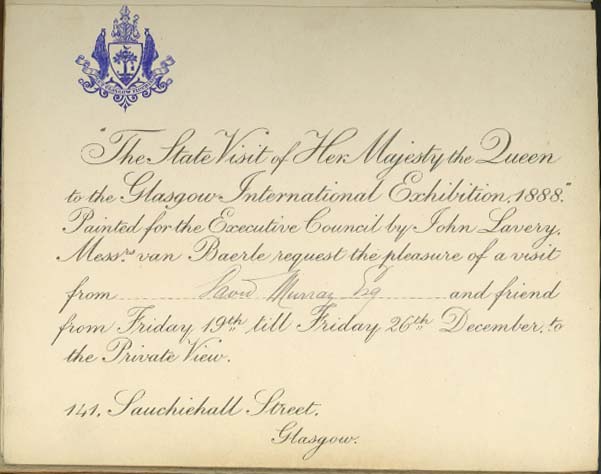 LET GLASGOW FLOURISH
"The State Visit of Her Majesty the Queen
to the Glasgow International Exhibition, 1888."
Painted for the Executive Council by John Lavery.
Messrs van Baerle request the pleasure of a visit
from David Murray Esq and friend
from Friday 19th till Friday 26th December, to
the Private View.
141, Sauchiehall Street,
Glasgow.